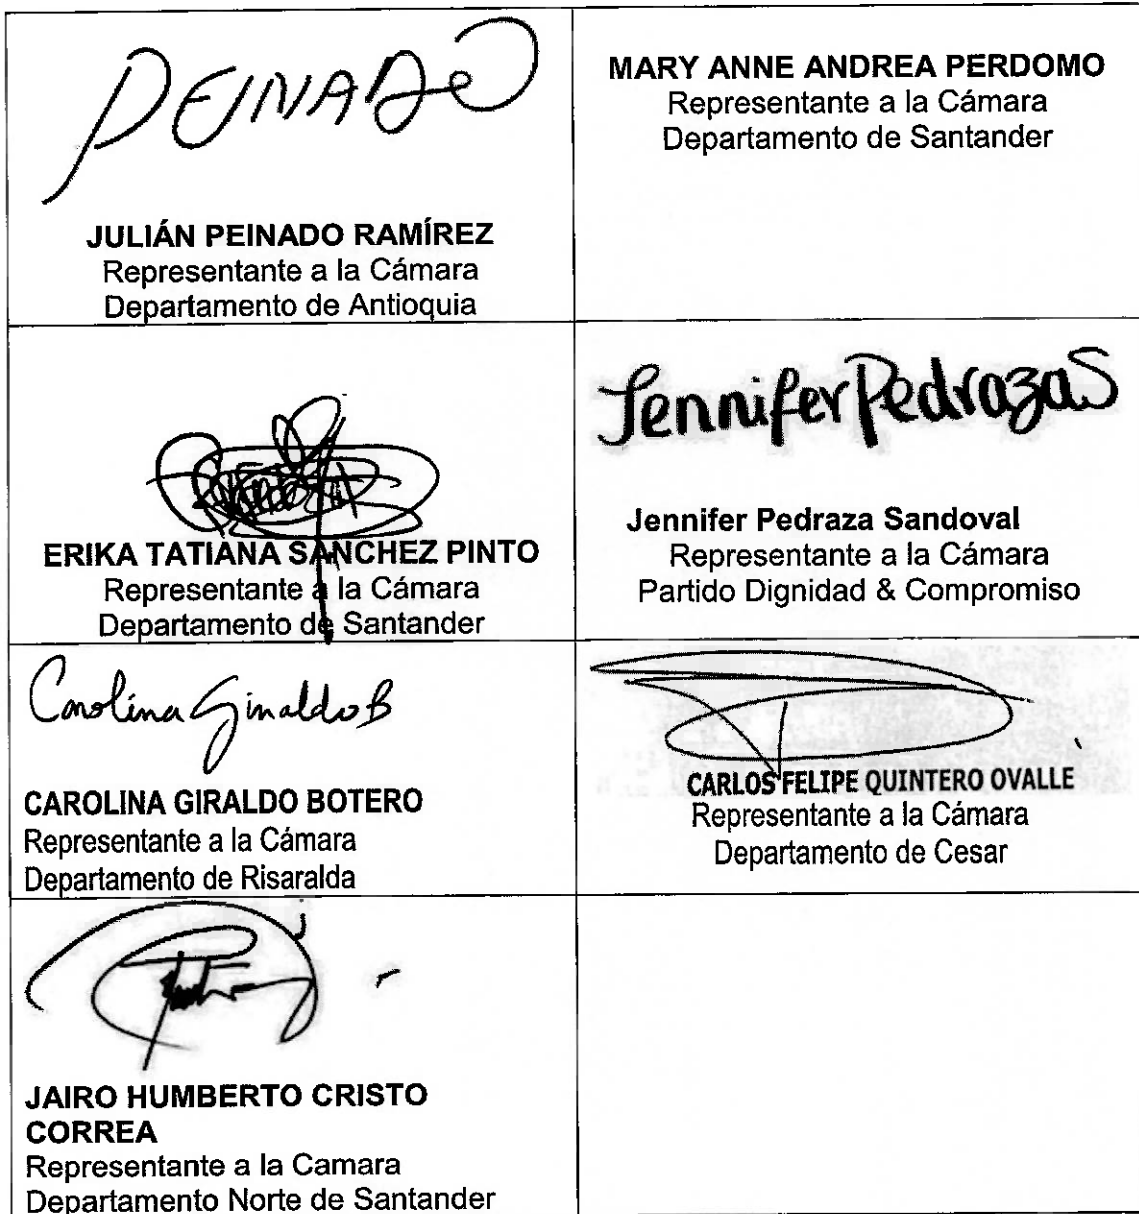 PEINADO
JULIÁN PEINADO RAMÍREZ
Representante a la Cámara
Departamento de Antioquia
MARY ANNE ANDREA PERDOMO
Representante a la Cámara
Departamento de Santander
ERIKA TATIANA SANCHEZ PINTO
Representante a la Cámara
Departamento de Santander
Jennifer Pedraza S
Jennifer Pedraza Sandoval
Representante a la Cámara
Partido Dignidad & Compromiso
Carolina Giraldo B
CAROLINA GIRALDO BOTERO
Representante a la Cámara
Departamento de Risaralda
CARLOS FELIPE QUINTERO OVALLE
Representante a la Cámara
Departamento de Cesar
JAIRO HUMBERTO CRISTO
CORREA
Representante a la Camara
Departamento Norte de Santander